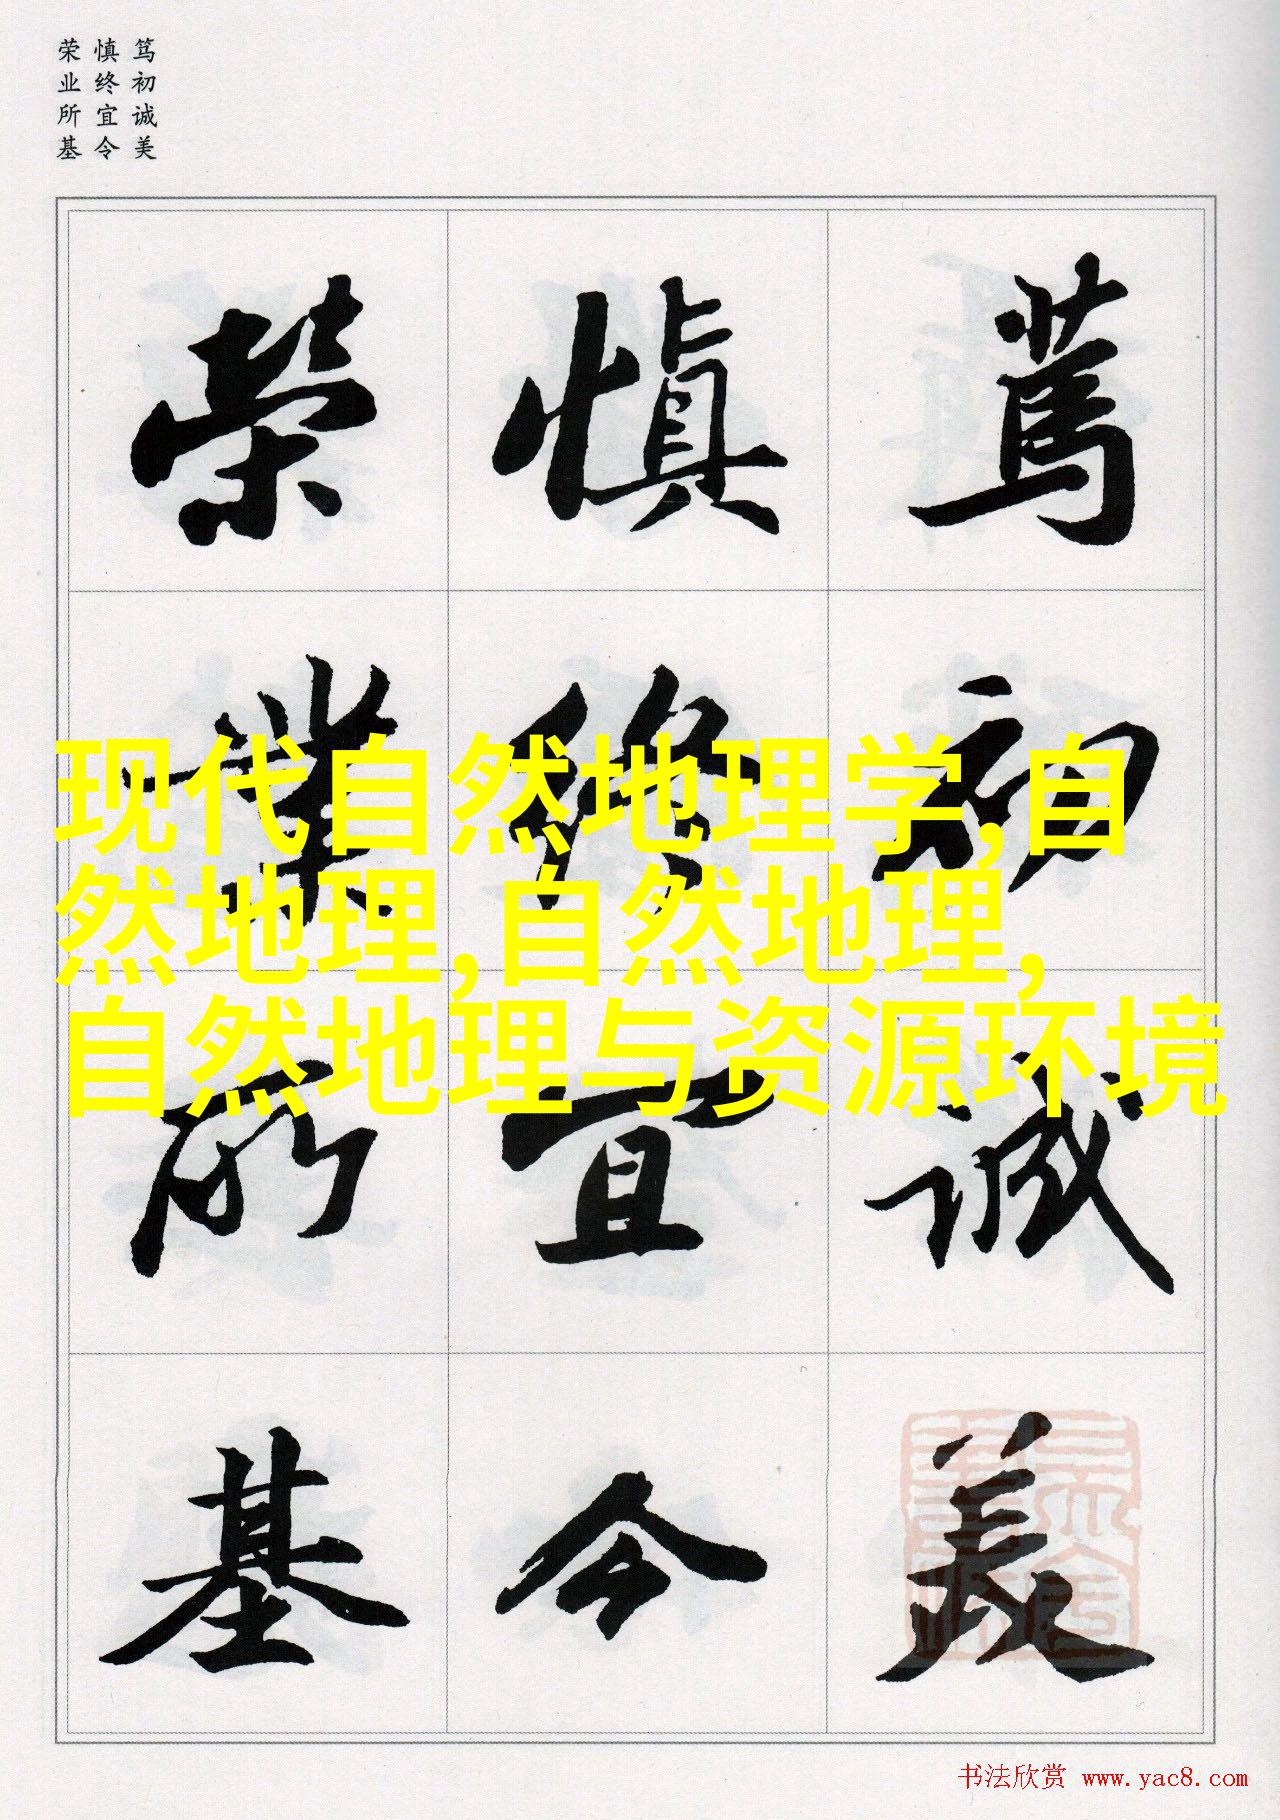 笃初诚美
慎终宜令
荣业所基
篤初誠美
慎終宜令
榮業所基
现代自然地理学,自
然地理,自然地理,
自然地理与资源环境
书法欣赏 www.yac8.com